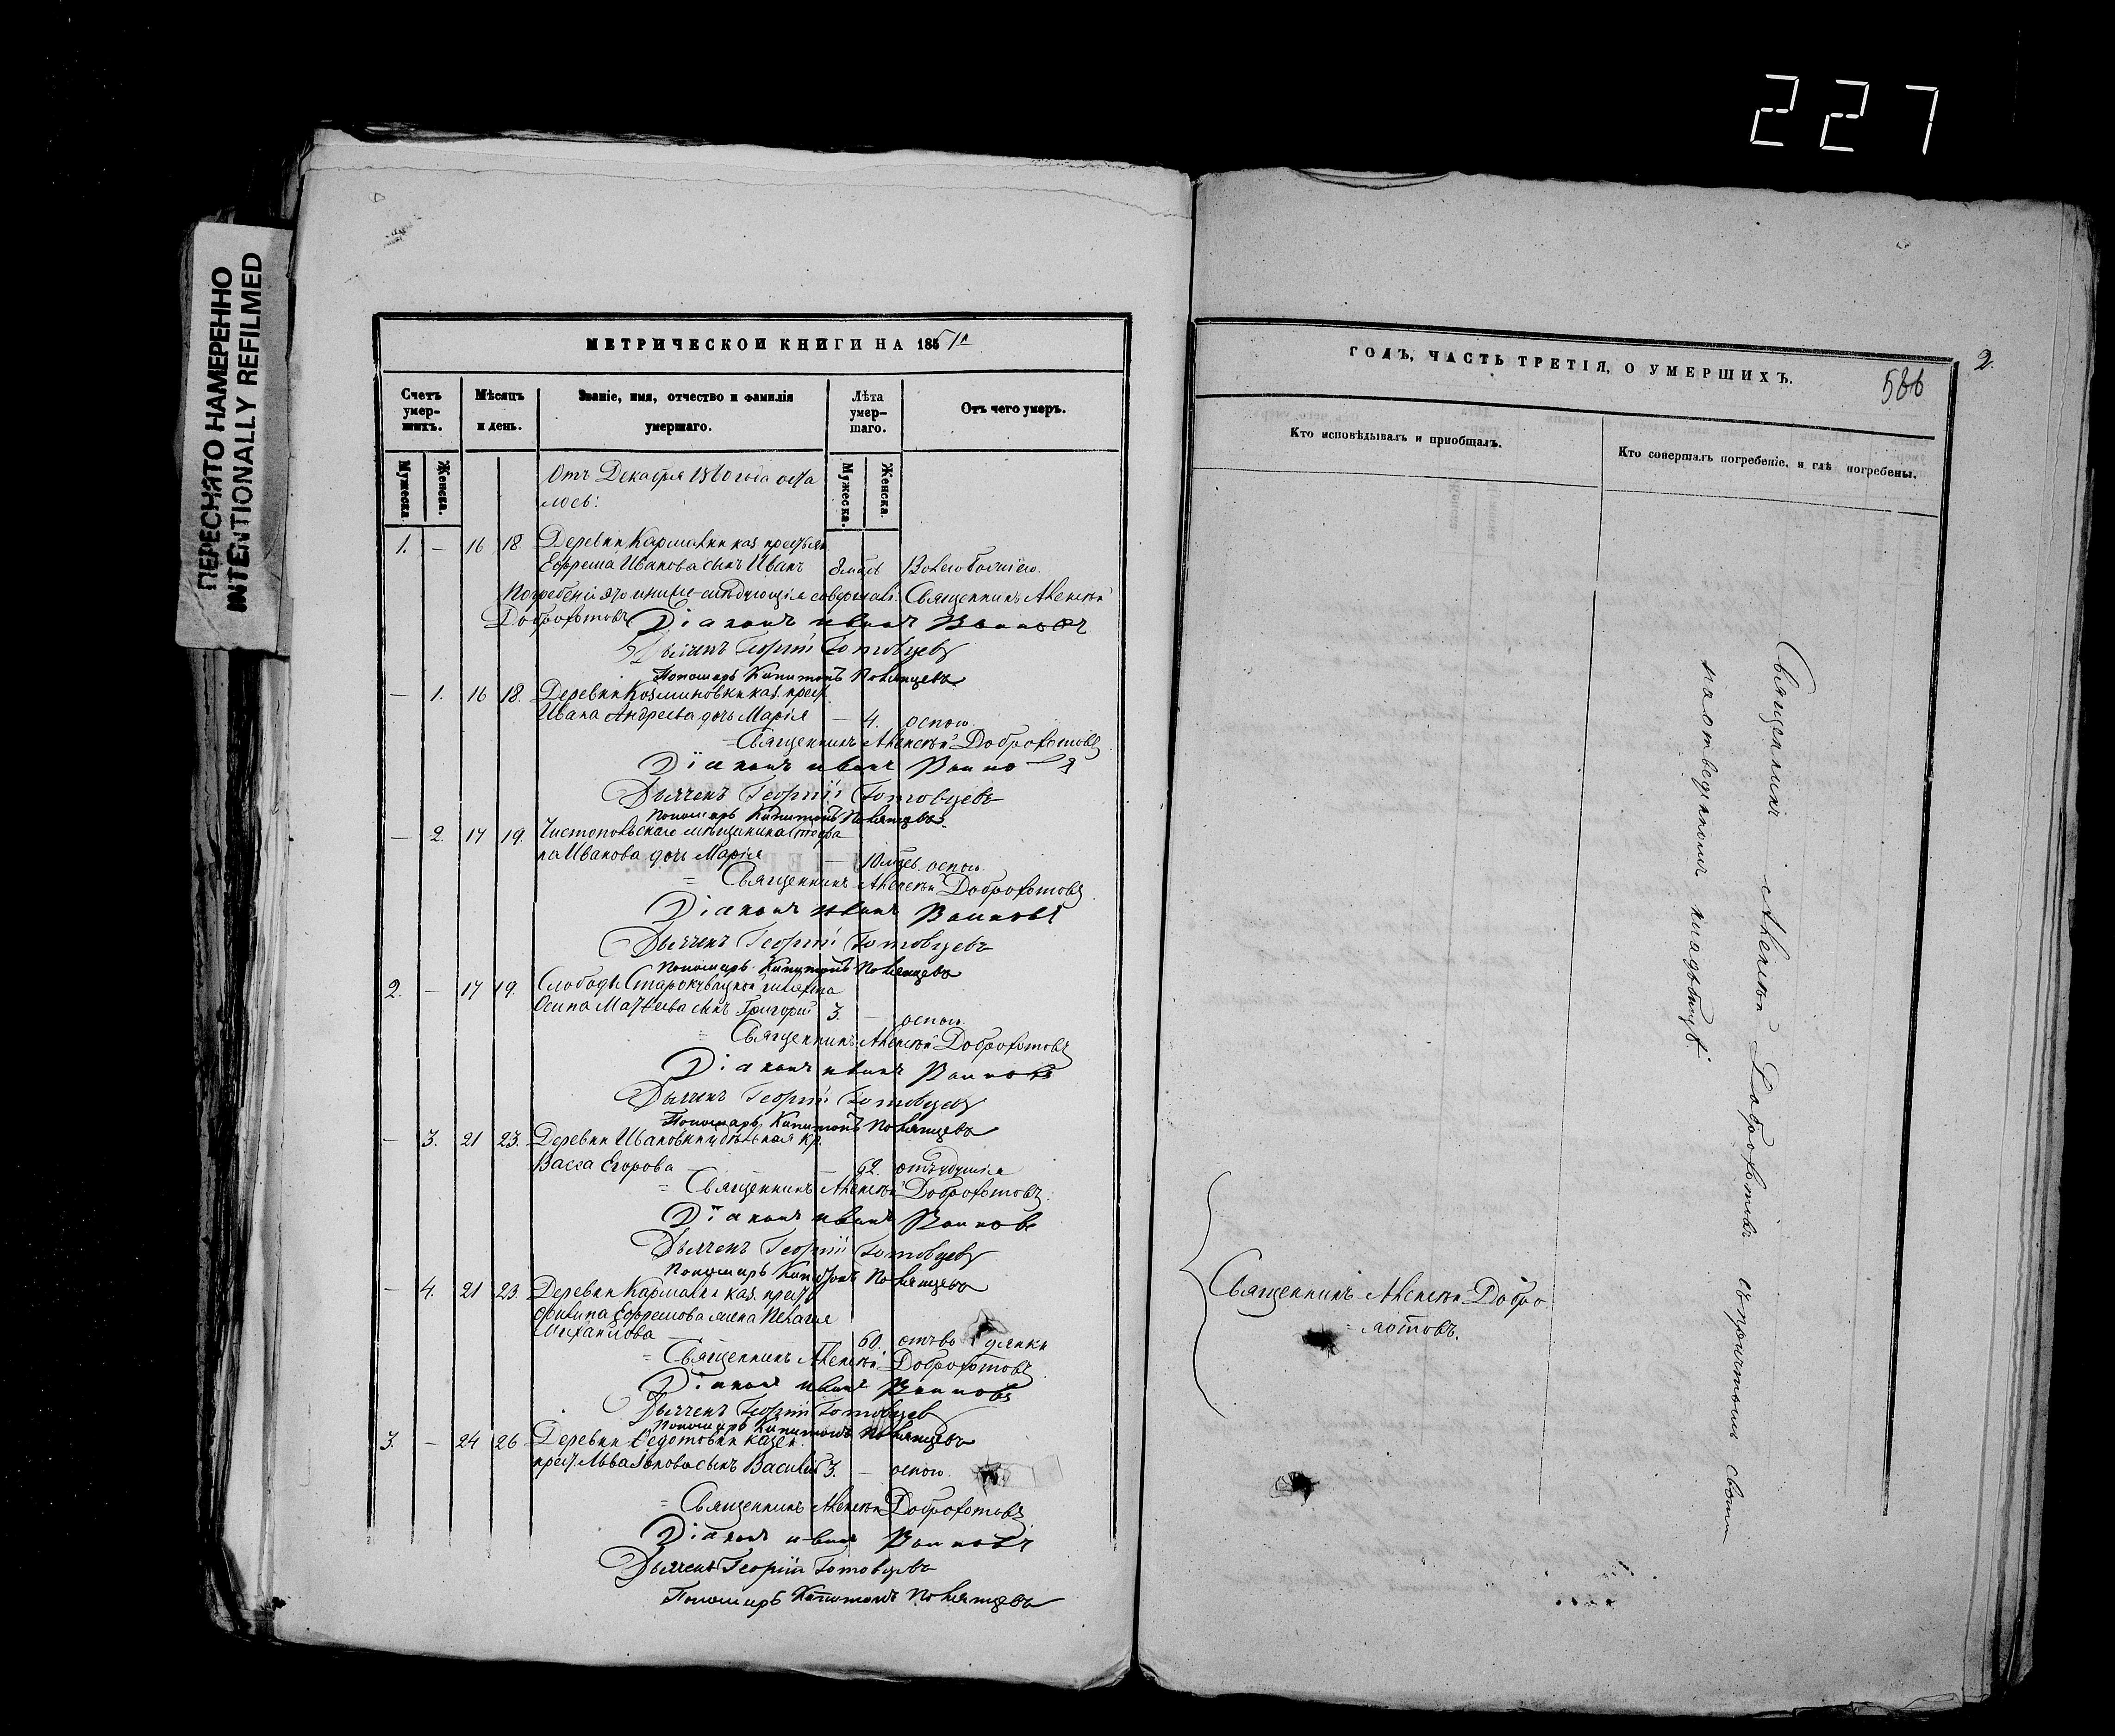 227
ПЕРЕСНЯТО НАМЕРЕННО
INTENTIONALLY REFILMED
МЕТРИЧЕСКОЙ КНИГИ НА 186
Счетъ умер-шихъ.
Мѣсяцъ и день.
Званіе, имя, отчество и фамилія умершаго.
Лѣта умер-шаго.
Отъ чего умеръ.
Мужеска.
Женска.
Мужеска.
Женска.
Отъ Декабря 1860 года оста
лось:
1. — 16 18. Деревни Кармалки каз. крестьян
Ефрема Иванова сынъ Иванъ 8 мѣс
Погребеніе это и ниже слѣдующія совершалъ: Священникъ Алексѣй
Доброхотовъ Діаконъ Иванъ
Дьячекъ Георгій Готовцевъ
Пономарь Капитонъ
— 1. 16 18. Деревни Козминовки каз. крест.
Ивана Андреева дочь Марія — 4. оспою.
Священникъ Алексѣй Доброхотовъ
Діаконъ Иванъ
Дьячекъ Георгій Готовцевъ
Пономарь Капитонъ
— 2. 17 19. Чистопольскаго мѣщанина Стефа
на Иванова дочь Марія — 10 мѣс. оспою.
= Священникъ Алексѣй Доброхотовъ
Діаконъ Иванъ
Дьячекъ Георгій Готовцевъ
Пономарь Капитонъ
2. — 17 19. Слободы
Осипа Матвеева сынъ Григорій 3. — оспою.
= Священникъ Алексѣй Доброхотовъ
Діаконъ Иванъ
Дьячекъ Георгій Готовцевъ
Пономарь Капитонъ
— 3. 21 23. Деревни Ивановки удѣльная кр.
Васса Егорова — 62. отъ удушія
= Священникъ Алексѣй Доброхотовъ
Діаконъ Иванъ
Дьячекъ Георгій Готовцевъ
Пономарь Капитонъ
— 4. 21 23. Деревни Кармалки каз. крест.
Филипа Ефремова жена Пелагея
Михайлова 60. отъ водянки
= Священникъ Алексѣй Доброхотовъ
Діаконъ Иванъ
Дьячекъ Георгій Готовцевъ
Пономарь Капитонъ
3. — 24 26 Деревни Федотовки казен.
крест. сынъ Василій 3. — оспою.
= Священникъ Алексѣй Доброхотовъ
Діаконъ Иванъ
Дьячекъ Георгій Готовцевъ
Пономарь Капитонъ
ГОДЪ, ЧАСТЬ ТРЕТІЯ, О УМЕРШИХЪ.
2.
586
Кто исповѣдывалъ и пріобщалъ.
Кто совершалъ погребеніе, и гдѣ погребены.
Священникъ Алексѣй Добро
=хотовъ.
Священникъ Алексѣй Доброхотовъ съ причтомъ своим
на отведенномъ кладбищѣ.